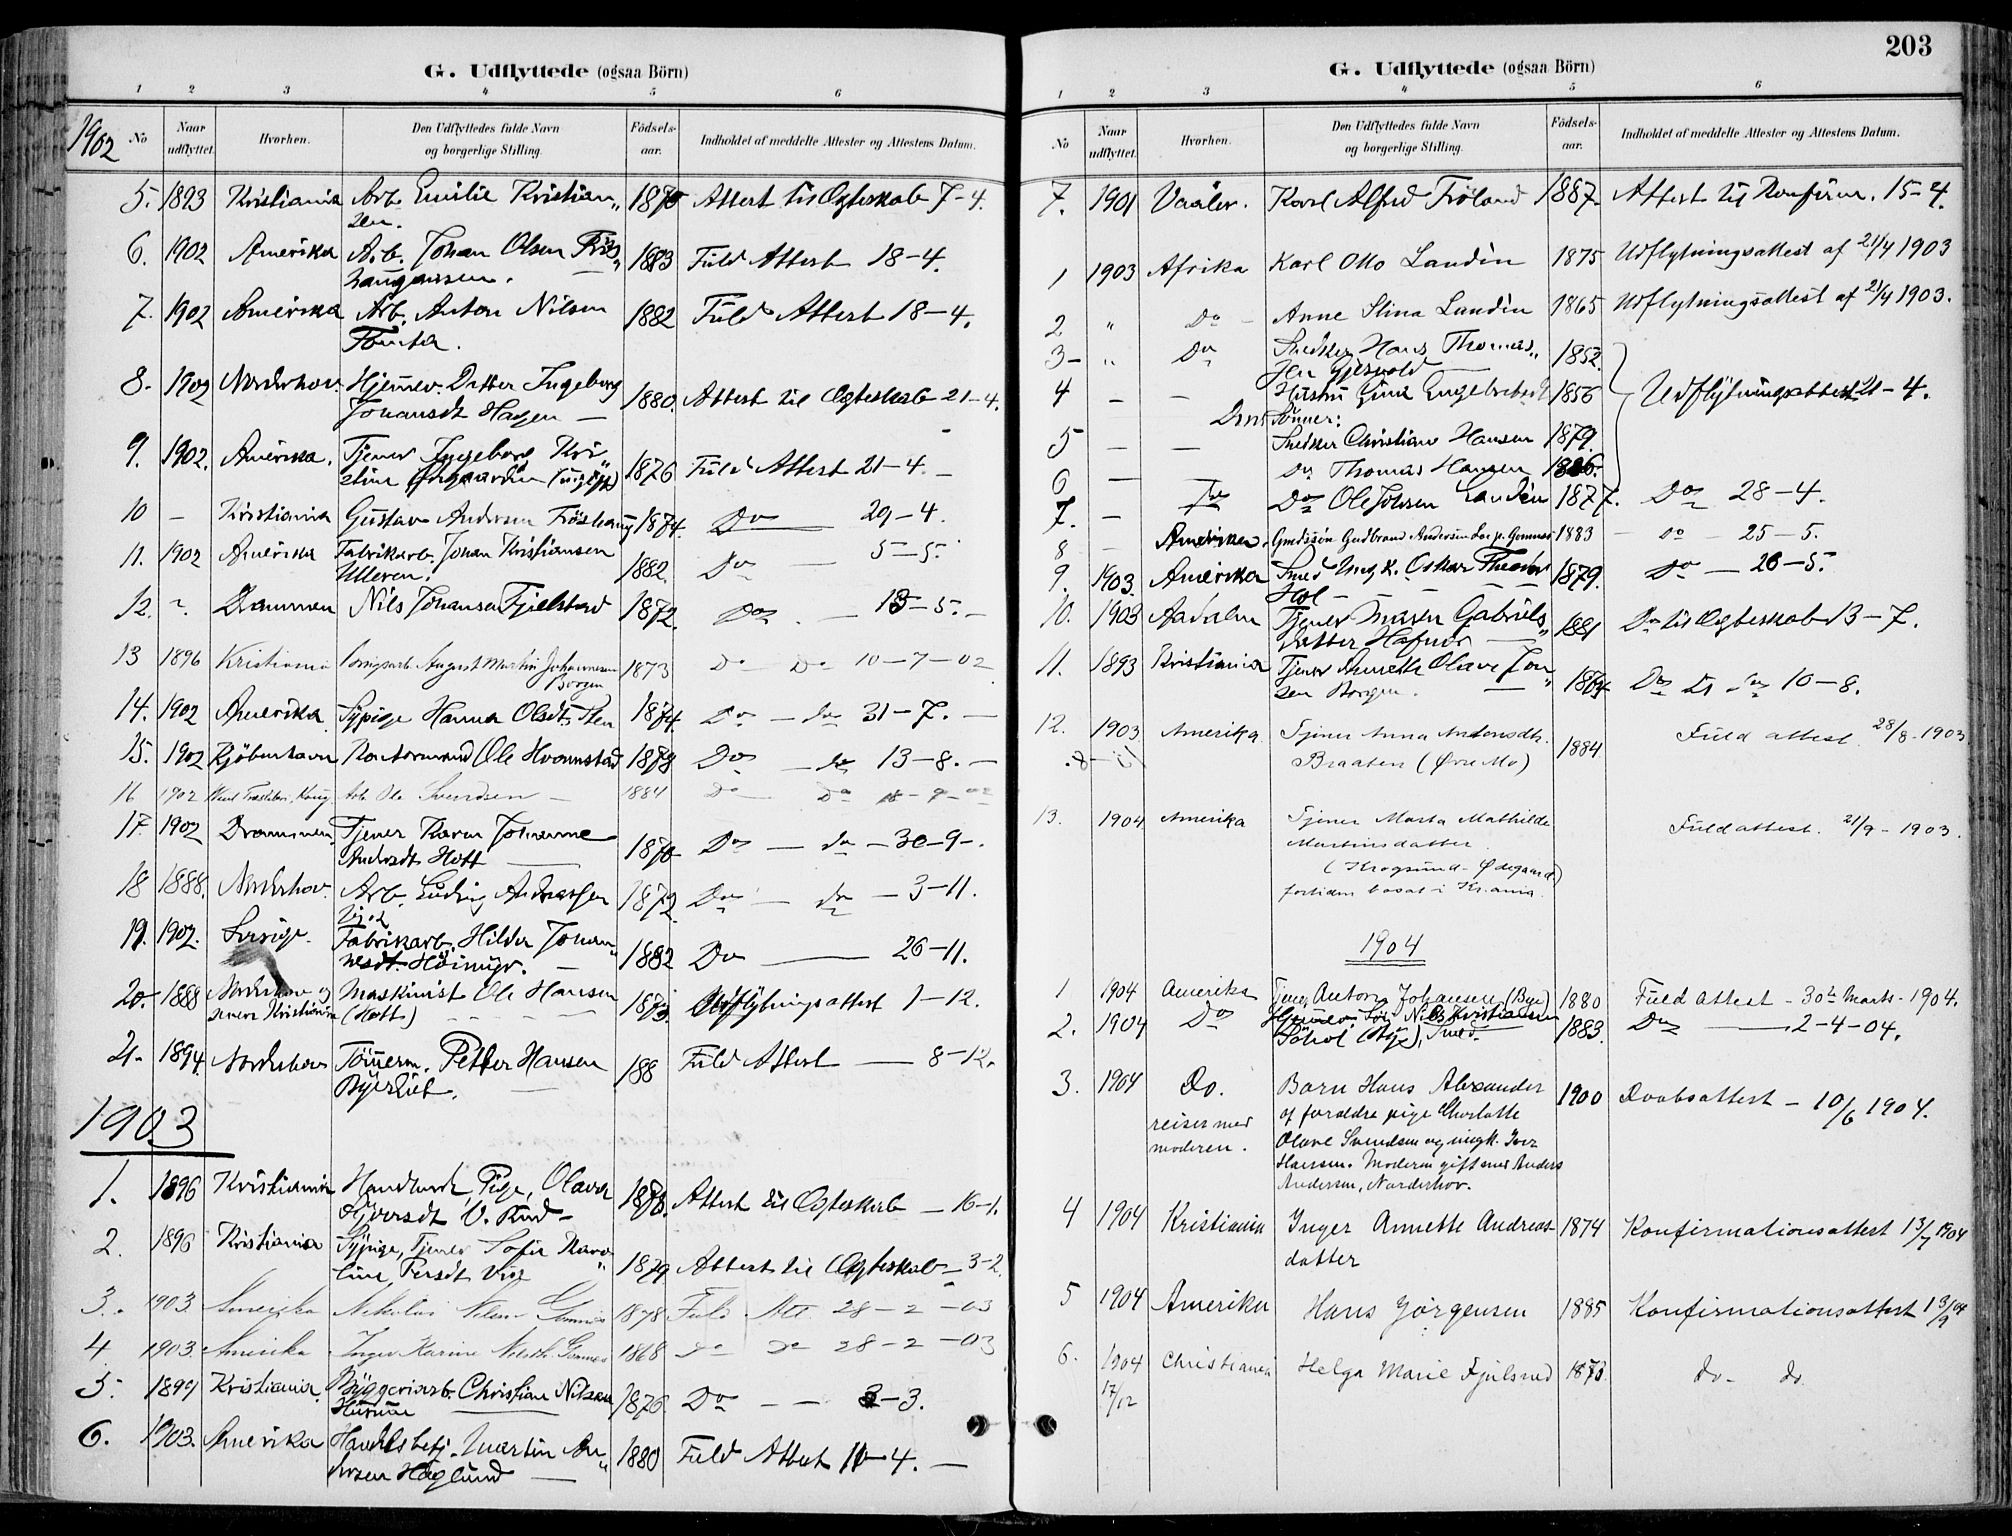 203
G. Udflyttede (ogsaa Börn)
1 2 3 4 5 6
1902 No Naar udflyttet. Hvorhen. Den Udflyttedes fulde Navn og borgerlige Stilling. Födsels-aar. Indholdet af meddelte Attester og Attestens Datum.
5. 1893 Kristiania Arb. Emilie Kristian„ 1870 Attest til Ægteskab 7-4.
sen.
6. 1902 Amerika Arb. Johan Olsen 1883 Fuld Attest 18-4.
7. 1902 Amerika Arb. Anton Nilsen 1882 Fuld Attest 18-4.
8. 1902 Norderhov. Hjemmev. Datter Ingeborg 1880. Attest til Ægteskab 21-4.
Johansdt Hagen
9. 1902. Amerika. Tjener Ingeborg Kri„ 1876 Fuld Attest 21-4.
stine
10 - Kristiania Gustav Andersen Fröshaug 1874. Do 29-4.
11. 1902 Amerika Fabrikarb. Johan Kristiansen 1882. Do 5-5.
Ulleren.
12. Drammen Nils Johansen Fjelstad 1872. Do 13-5.
13 1896 Kristiania August Martin Johannesen 1873 Do Do 10-7-02
Borgen
14. 1902 Amerika Sypige Hanna Olsdt. 1874. Do - do 31-7.
15. 1902 Kjöbenhavn Kontormand Ole Hvamstad 1879 Do - do 13-8.
16 1902 Arb. Ole Svendsen 1884 Do Do
17 1902 Drammen. Tjener Karen Johanne 1870 Do - do - 30-9-.
Andersdt. Hott
18 1888. Norderhov. Arb. Ludvig Andreassen 1872. Do - do - 3-11.
19. 1902. Sverige. Fabrikarb. Hilda Johan„ 1882 Do 26-11.
nesdt. Höimyr.
20. 1888 Norderhov og Maskinist Ole Hansen 1873. Udflytningsattest 1-12.
senere Kristiania (Hott)
21. 1894. Norderhov Tömerm. Petter Hansen 188 Fuld Attest 8-12.
1903
1. 1896 Kristiania Pige, Olava 1878. Attest til Ægteskab 16-1.
2. 1896 Kristiania Sypige, Tjener Sofie Karo„ 1879. Attest til Ægteskab 3-2.
line, Persdt
3. 1903. Amerika Nikolai Nilsen 1878 Fuld Att. 28-2-03
4 1903. Amerika Inger Karine Nilsdt. 1868 do do 28-2-03
5. 1899 Kristiania Byggeriarb. Christian Nilsen 1876. Do - - 3-3.
6. 1903. Amerika Handelsbetj. Martin An„ 1880 Fuld Attest 11-4.
dersen Haglund
G. Udflyttede (ogsaa Börn)
1 2 3 4 5 6
No Naar udflyttet. Hvorhen. Den Udflyttedes fulde Navn og borgerlige Stilling. Födsels-aar. Indholdet af meddelte Attester og Attestens Datum.
7. 1901 Vaaler. Karl Alfred Fröland 1887. Attest til Konfirm. 15-4.
1 1903 Afrika Karl Otto Landin 1875 Udflytningsattest af 21/4 1903
2 „ Do Anne Stina Landin 1865 Udflytningsattest af 21/4 1903.
3- „ Do Snedker Hans Thomas„ 1852
sen
4 - - Hustru Gina Engebretsdt 1856 Udflytningsattest 21-4.
Deres Sönner:
5 - - Snedker Christian Hansen 1879.
6 - - Do Thomas Hansen 1886.
7. - Do Ole Johsen Landin 1877. Do 28-4.
8 - Amerika. Gudbrand Andersen 1883 - do - 25-5.
9. 1903. Amerika Smed Ungk. Oskar Theodor 1879. Do - 26-5.
Hol
10. 1903 Aadalen Tjener Maren Gabriels„ 1881 Do til Ægteskab 13-7.
datter
11. 1893 Kristiania Tjener Annette Olave Jon„ 1864 Do Do do 10-8.
sen Borgen.
12. 1903. Amerika. Tjener Anna Antonsdtr. 1884 Fuld attest. 28/8-1903
Braaten (Øvre Mo)
13. 1904 Amerika Tjener Marta Mathilde Fuld attest. 21/9-1903.
Martinsdatter
(Krogsund-Ødegaard)
fortiden bosat i Kr.ania.
1904
1 1904 Amerika Tjener Anton Johansen (Bye) 1880 Fuld Attest - 30te Marts - 1904.
2. 1904 Do Nils Kristiansen 1883. Do 2-4-04.
3. 1904 Do. Barn Hans Alexander 1900 Daabsattest - 10/6 1904.
reiser med af forældre pige Charlotte
moderen. Olave Svendsen og ungk. Iver
Hansen. Moderen gift med Anders
Andersen, Norderhov.
4 1904 Kristiania Inger Annette Andreas 1874 Konfirmationsattest 13/7 1904
datter
5 1904 Amerika Hans Jörgensen 1885 Konfirmationsattest 13/9 04
6. 1904 Christiania Helga Marie Fjulsrud 1873 do - do.
17/12